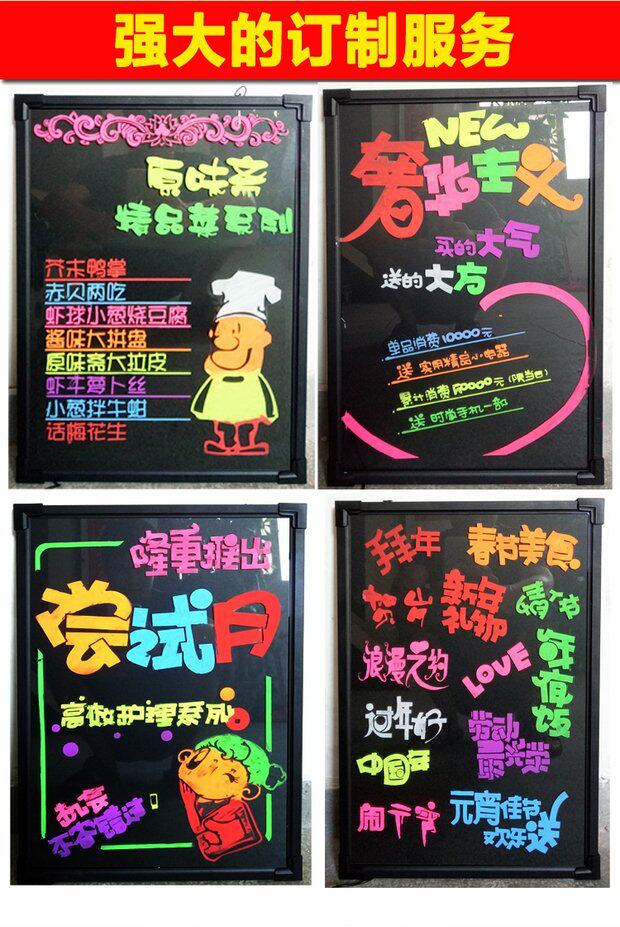 强大的订制服务
原味斋
精品菜系列
芥末鸭掌
赤贝两吃
虾球小葱烧豆腐
酱味大拼盘
原味斋大拉皮
虾干萝卜丝
小葱拌牛蚶
话梅花生
NEW
奢华主义
买的大气
送的大方
单品消费10000元
送 实用精品小电器
累计消费50000元(限当日)
送 时尚手机一部
隆重推出
尝试月
高效护理系列
机会
不容错过!
拜年
春节美食
贺岁
新年
礼物
情人节
浪漫之约
LOVE
年夜饭
过年好
劳动
最光荣
中国年
闹元宵
元宵佳节
欢乐送